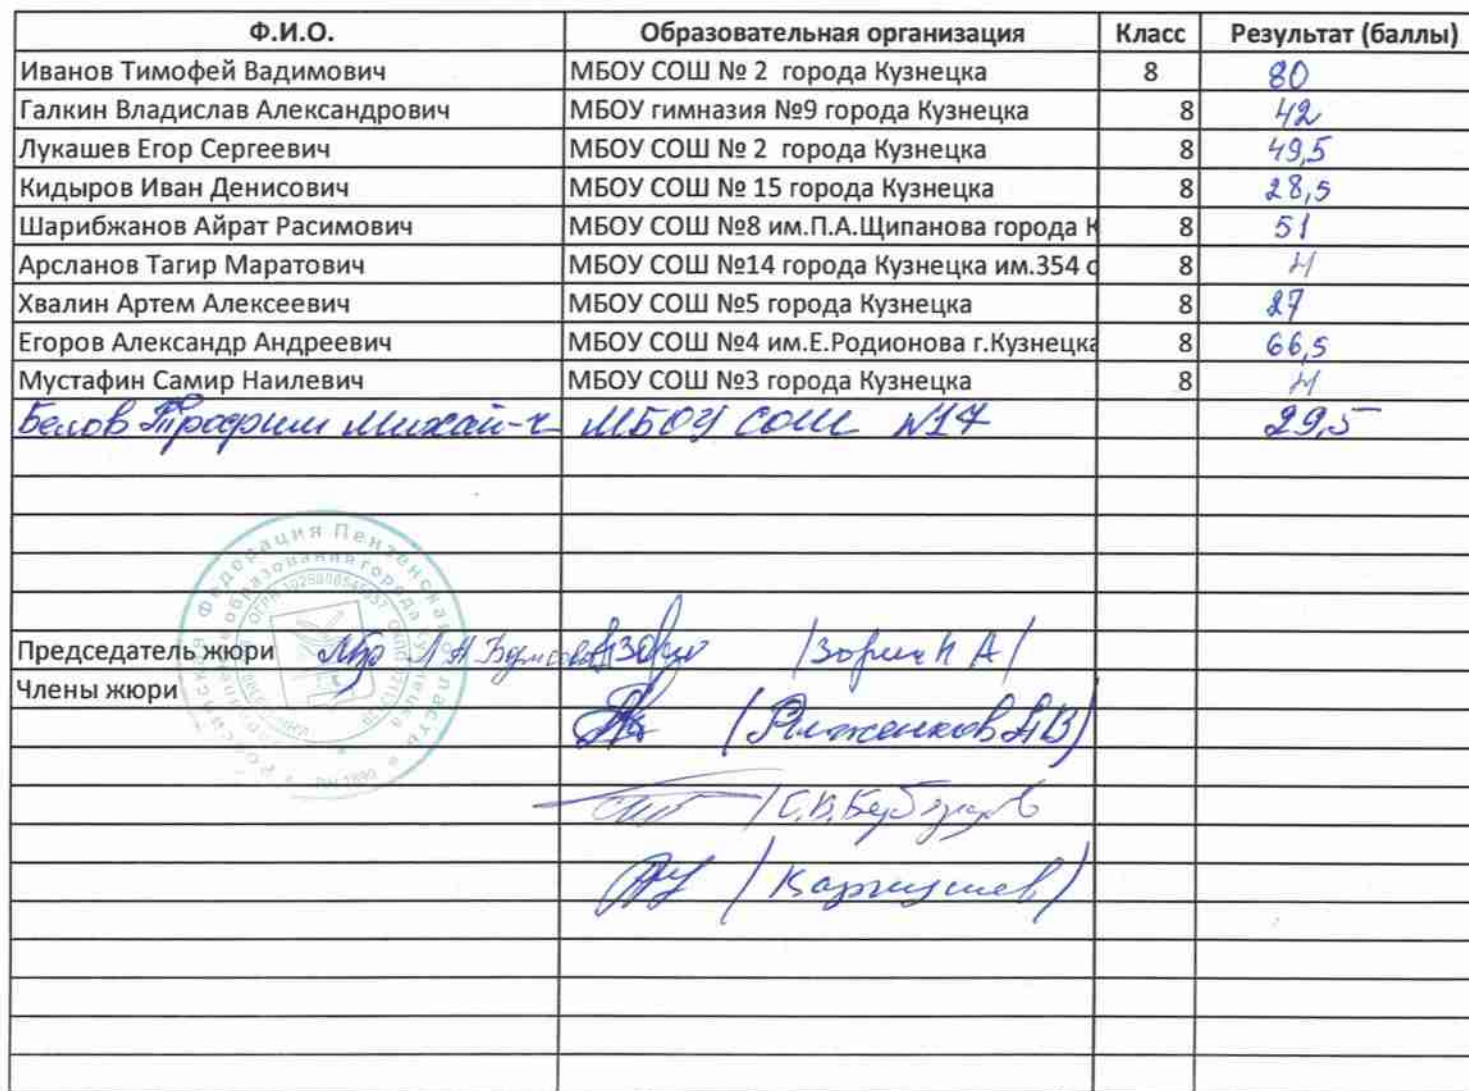 Ф.И.О. Образовательная организация Класс Результат (баллы)
Иванов Тимофей Вадимович МБОУ СОШ № 2 города Кузнецка 8 80
Галкин Владислав Александрович МБОУ гимназия №9 города Кузнецка 8 42
Лукашев Егор Сергеевич МБОУ СОШ № 2 города Кузнецка 8 49,5
Кидыров Иван Денисович МБОУ СОШ № 15 города Кузнецка 8 28,5
Шарибжанов Айрат Расимович МБОУ СОШ №8 им.П.А.Щипанова города К 8 51
Арсланов Тагир Маратович МБОУ СОШ №14 города Кузнецка им.354 с 8 н
Хвалин Артем Алексеевич МБОУ СОШ №5 города Кузнецка 8 27
Егоров Александр Андреевич МБОУ СОШ №4 им.Е.Родионова г.Кузнецка 8 66,5
Мустафин Самир Наилевич МБОУ СОШ №3 города Кузнецка 8 н
Белов Трофим Михай-ч МБОУ СОШ №17 29,5
Российская Федерация Пензенская область
образования города Кузнецка
Председатель жюри /Зорин А/
Члены жюри